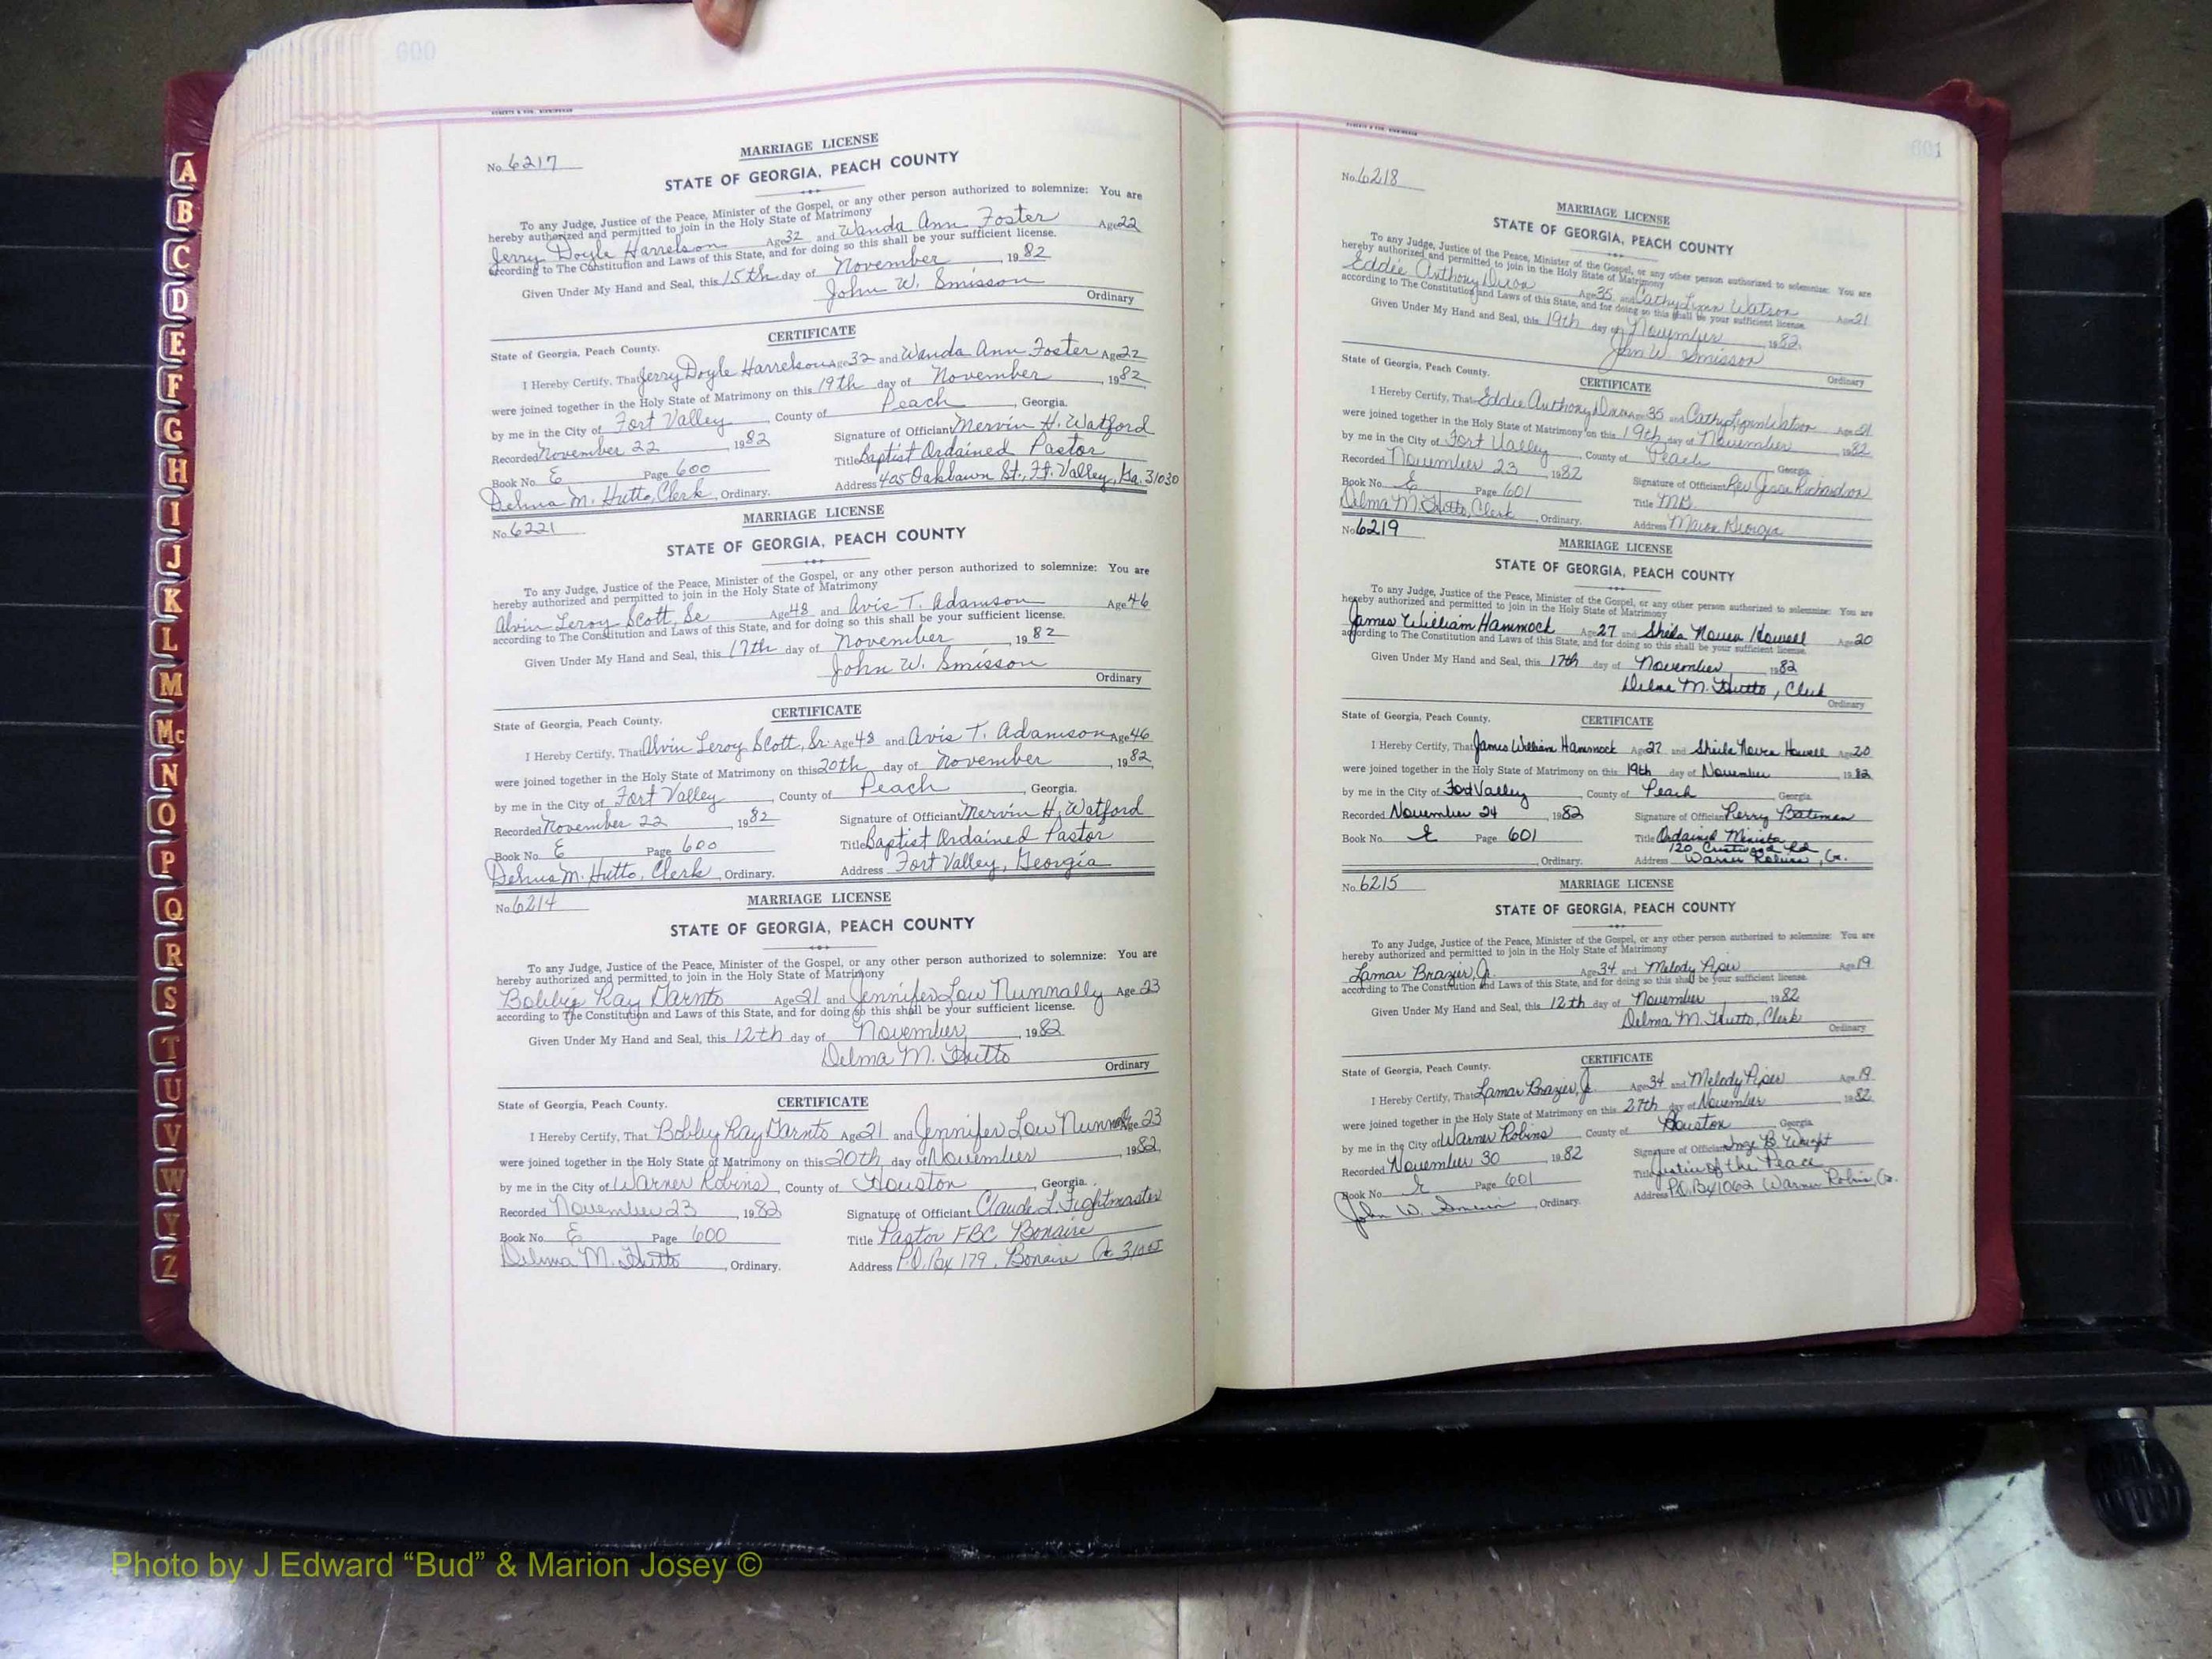 A
B
C
D
E
F
G
H
I
J
K
L
M
Mc
N
O
P
Q
R
S
T
U
V
W
Y
Z
600
MARRIAGE LICENSE
No. 6217
STATE OF GEORGIA, PEACH COUNTY
To any Judge, Justice of the Peace, Minister of the Gospel, or any other person authorized to solemnize: You are
hereby authorized and permitted to join in the Holy State of Matrimony
Jerry Doyle Harrelson Age 32 and Wanda Ann Foster Age 22
according to The Constitution and Laws of this State, and for doing so this shall be your sufficient license.
Given Under My Hand and Seal, this 15th day of November, 1982
John W. Smisson
Ordinary
CERTIFICATE
State of Georgia, Peach County.
I Hereby Certify, That Jerry Doyle Harrelson Age 32 and Wanda Ann Foster Age 22
were joined together in the Holy State of Matrimony on this 19th day of November, 1982
by me in the City of Fort Valley, County of Peach, Georgia.
Recorded November 22, 1982 Signature of Officiant Mervin H. Watford
Book No. E Page 600 Title Baptist Ordained Pastor
Delma M. Hutto, Clerk, Ordinary. Address 405 Oaklawn St., Ft. Valley, Ga. 31030
MARRIAGE LICENSE
No. 6221
STATE OF GEORGIA, PEACH COUNTY
To any Judge, Justice of the Peace, Minister of the Gospel, or any other person authorized to solemnize: You are
hereby authorized and permitted to join in the Holy State of Matrimony
Alvin Leroy Scott, Sr Age 48 and Avis T. Adamson Age 46
according to The Constitution and Laws of this State, and for doing so this shall be your sufficient license.
Given Under My Hand and Seal, this 17th day of November, 1982
John W. Smisson
Ordinary
CERTIFICATE
State of Georgia, Peach County.
I Hereby Certify, That Alvin Leroy Scott, Sr. Age 48 and Avis T. Adamson Age 46
were joined together in the Holy State of Matrimony on this 20th day of November, 1982
by me in the City of Fort Valley, County of Peach, Georgia.
Recorded November 22, 1982 Signature of Officiant Mervin H. Watford
Book No. E Page 600 Title Baptist Ordained Pastor
Delma M. Hutto, Clerk, Ordinary. Address Fort Valley, Georgia
No. 6214 MARRIAGE LICENSE
STATE OF GEORGIA, PEACH COUNTY
To any Judge, Justice of the Peace, Minister of the Gospel, or any other person authorized to solemnize: You are
hereby authorized and permitted to join in the Holy State of Matrimony
Bobby Ray Darnto Age 21 and Jennifer Low Nunnally Age 23
according to The Constitution and Laws of this State, and for doing so this shall be your sufficient license.
Given Under My Hand and Seal, this 12th day of November, 1982
Delma M. Hutto
Ordinary
CERTIFICATE
State of Georgia, Peach County.
I Hereby Certify, That Bobby Ray Darnto Age 21 and Jennifer Low Age 23
were joined together in the Holy State of Matrimony on this 20th day of November, 1982
by me in the City of Warner Robins, County of Houston, Georgia.
Recorded November 23, 1982 Signature of Officiant Claude L. Fightmaster
Book No. E Page 600 Title Pastor FBC Bonaire
Delma M. Hutto, Ordinary. Address P.O. Box 179, Bonaire Ga 31005
601
No. 6218
MARRIAGE LICENSE
STATE OF GEORGIA, PEACH COUNTY
To any Judge, Justice of the Peace, Minister of the Gospel, or any other person authorized to solemnize: You are
hereby authorized and permitted to join in the Holy State of Matrimony
Eddie Anthony Dixon Age 35 and Cathy Lynn Watson Age 21
according to The Constitution and Laws of this State, and for doing so this shall be your sufficient license.
Given Under My Hand and Seal, this 19th day of November, 1982
John W. Smisson
Ordinary
State of Georgia, Peach County.
CERTIFICATE
I Hereby Certify, That Eddie Anthony Dixon Age 35 and Cathy Lynn Watson Age 21
were joined together in the Holy State of Matrimony on this 19th day of November, 1982
by me in the City of Fort Valley, County of Peach, Georgia
Recorded November 23, 1982 Signature of Officiant Rev Jesse Richardson
Book No. E Page 601 Title
Delma M. Hutto, Clerk, Ordinary. Address Macon Georgia
No. 6219
MARRIAGE LICENSE
STATE OF GEORGIA, PEACH COUNTY
To any Judge, Justice of the Peace, Minister of the Gospel, or any other person authorized to solemnize: You are
hereby authorized and permitted to join in the Holy State of Matrimony
James William Hammock Age 27 and Sheila Howell Age 20
according to The Constitution and Laws of this State, and for doing so this shall be your sufficient license.
Given Under My Hand and Seal, this 17th day of November, 1982
Delma M. Hutto, Clerk
Ordinary
State of Georgia, Peach County.
CERTIFICATE
I Hereby Certify, That James William Hammock Age 27 and Sheila Howell Age 20
were joined together in the Holy State of Matrimony on this 19th day of November, 1982
by me in the City of Fort Valley, County of Peach, Georgia
Recorded November 24, 1982 Signature of Officiant Perry Bateman
Book No. E Page 601 Title Ordained Minister
120 Crestwood Rd
Ordinary. Address Warner Robins, Ga.
No. 6215 MARRIAGE LICENSE
STATE OF GEORGIA, PEACH COUNTY
To any Judge, Justice of the Peace, Minister of the Gospel, or any other person authorized to solemnize: You are
hereby authorized and permitted to join in the Holy State of Matrimony
Lamar Brazier, Jr. Age 34 and Melody Piper Age 19
according to The Constitution and Laws of this State, and for doing so this shall be your sufficient license.
Given Under My Hand and Seal, this 12th day of November, 1982
Delma M. Hutto, Clerk
Ordinary
State of Georgia, Peach County.
CERTIFICATE
I Hereby Certify, That Lamar Brazier, Jr. Age 34 and Melody Piper Age 19
were joined together in the Holy State of Matrimony on this 27th day of November 1982
by me in the City of Warner Robins County of Houston, Georgia
Recorded November 30, 1982 Signature of Officiant Inge B. Wright
Book No. E Page 601 Title Justice of the Peace
John W. Smisson, Ordinary. Address P.O. Bx 1062 Warner Robins, Ga.
Photo by J Edward “Bud” & Marion Josey ©